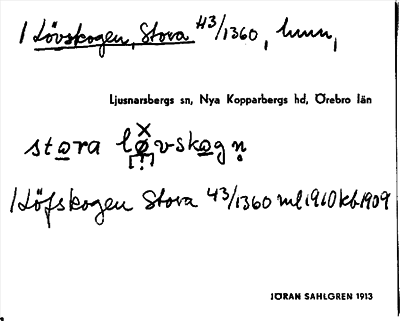 1 Lövskogen, Stora 43/1360, hmn,
Ljusnarsbergs sn, Nya Kopparbergs hd, Örebro län
stora løvskogṇ
[!]
1 Löfskogen Stora 43/1360 ml 1910 kb 1909
JÖRAN SAHLGREN 1913